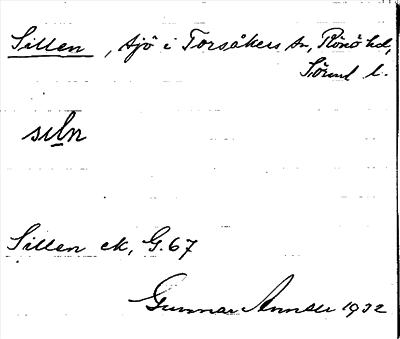 Sillen, sjö i Torsåkers sn, Rönö hd,
Sörml l.
siln
Sillen ek, G.67
Gunnar 1932